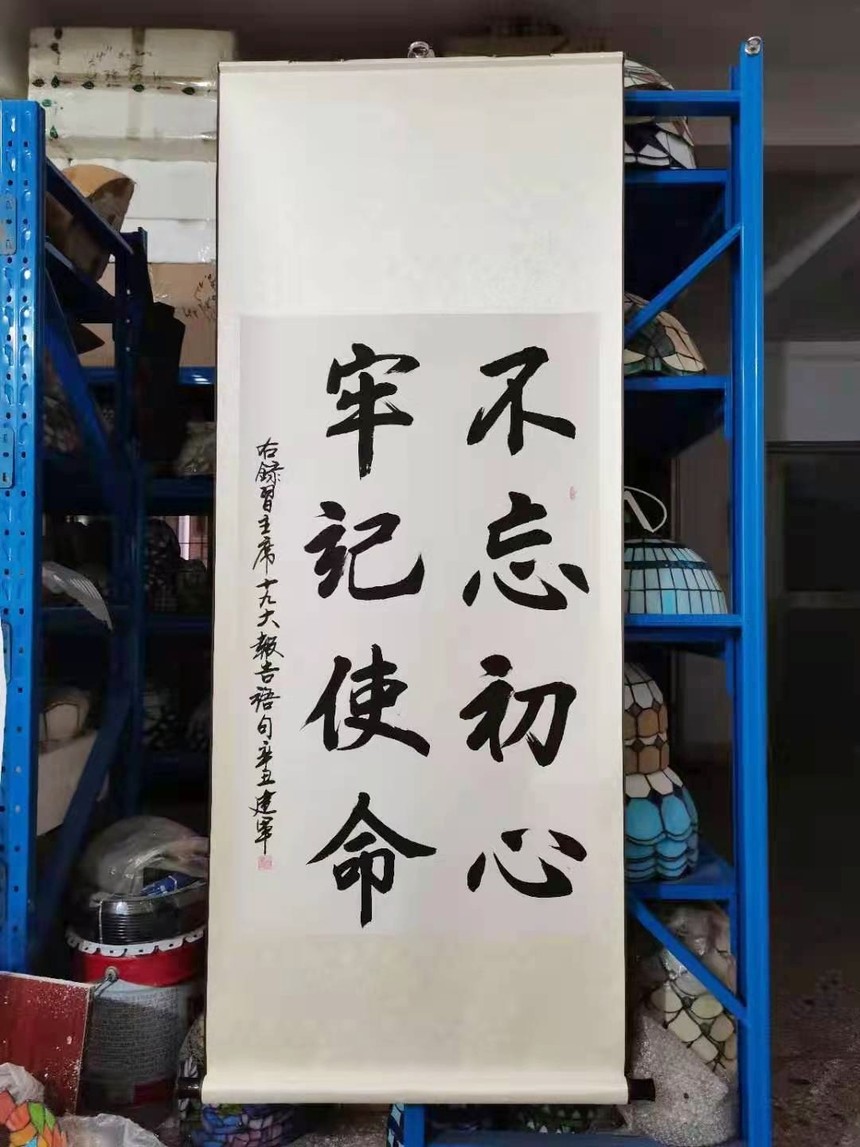 不忘初心
牢记使命
右録習主席十九大報告語句辛丑建軍